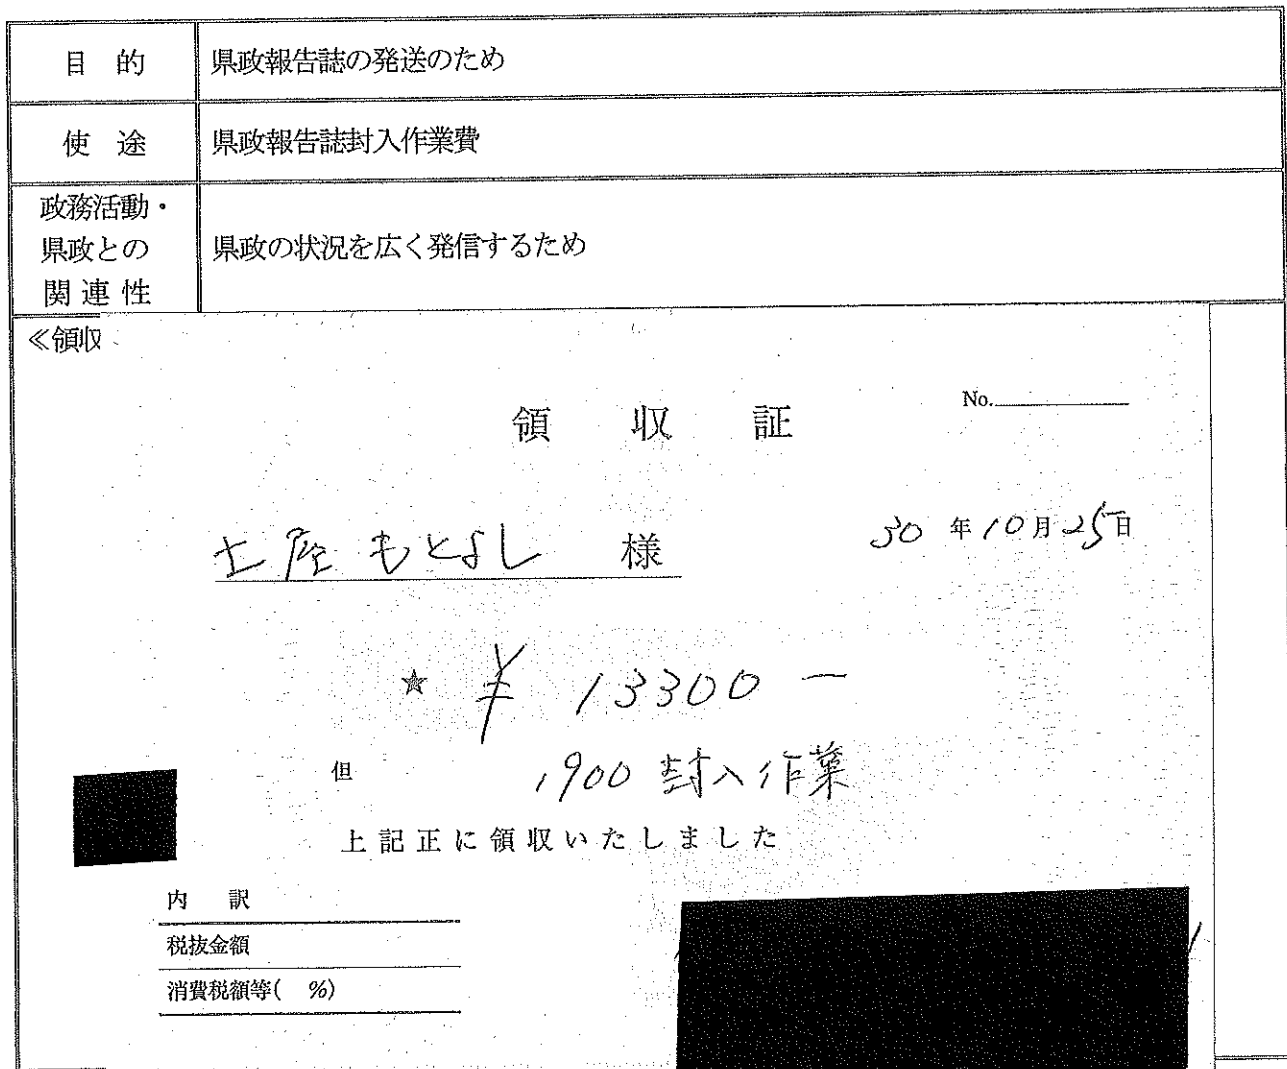 目 的 県政報告誌の発送のため
使 途 県政報告誌封入作業費
政務活動・
県政との
関 連 性
県政の状況を広く発信するため
≪領収
領 収 証
No.
土屋もとよし 様
30 年 10 月 25 日
★ ¥ 13300 ー
但 1900 封入作業
上記正に領収いたしました
内 訳
税抜金額
消費税額等( %)